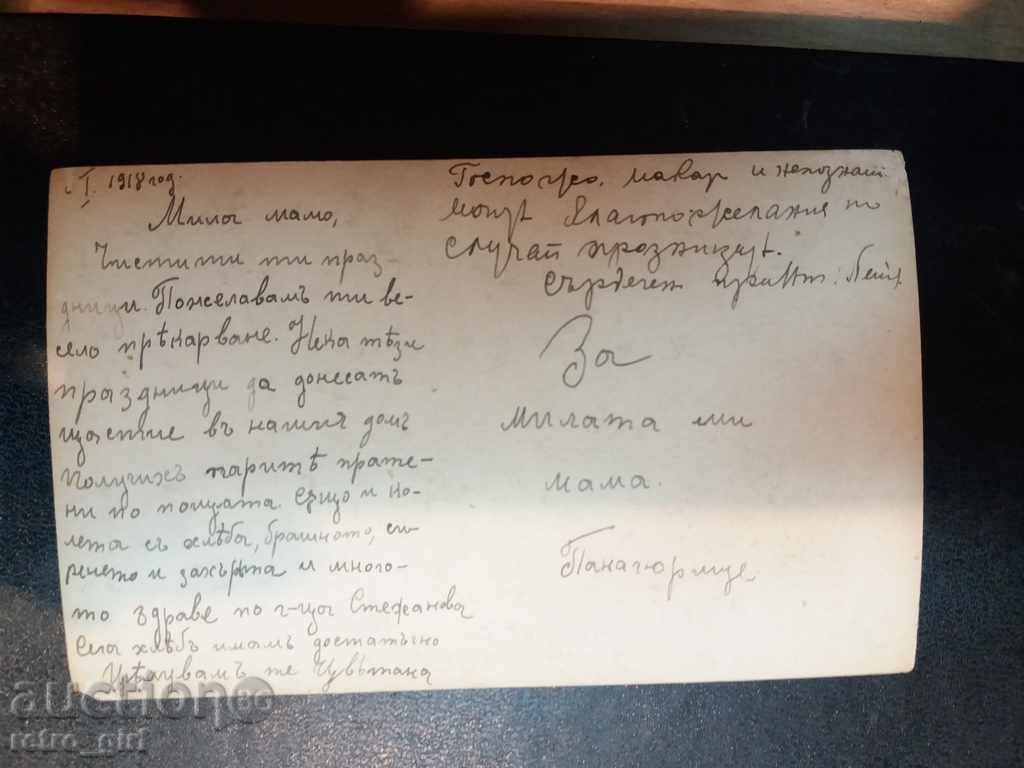 I. 1918 год.
Мила мамо,
Чистити ти праз-
дници. Пожелавамъ ти ве-
село прѣкарване. Нека тѣзи
праздници да донесатъ
щастие въ нашия домъ
Получихъ паритѣ прате-
ни по пощата. също и ко-
лета съ хлѣба, брашното, си-
ренето и захарта и много-
то здраве по г-ца Стефанова
Сега хлѣбъ имамъ достатъчно
Цѣлувамъ те Цвѣтана
Госпожо, макар и непознат
моит благопожелания по
случай празницит.
Сърдечен привѣт:
За
милата ми
мама.
Панагюрище
auction
retro_girl